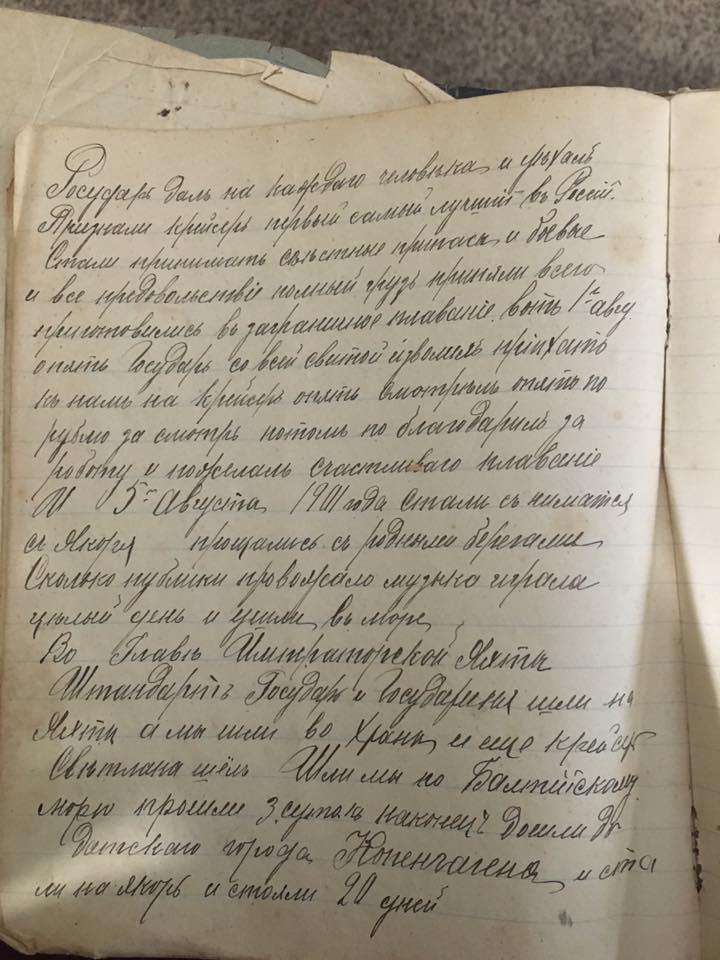 Государь далъ на каждаго человѣка и уѣхалъ
Признали крейсеръ первый самый лучшій въ Россіи.
Стали принимать съѣстные припасы и боевые
и все продовольствіе полный грузъ приняли всего
приготовились въ заграничное плаваніе. вотъ 1го авгу.
опять Государь со всей свитой изволилъ пріѣхать
къ намъ на крейсеръ опять смотрѣлъ опять по
рублю за смотръ потомъ по благодарилъ за
роботу и пожелалъ счастливаго плаваніе
И 5го Августа 1901 года стали съ ниматся
съ Якоря прощались съ родными берегами
Сколько публики провожало музыка играла
цѣлый день и ушли въ море
Во Главѣ Императорской Яхты
Штандартъ Государь и Государиня шли на
Яхты а мы шли во храны и еще крейсеръ
Свѣтлана шёлъ Шли мы по Балтійскому
морю прошли 3 сутокъ наконецъ дошли до
Датскаго города Копенгагена и ста
ли на якорь и стояли 20 дней